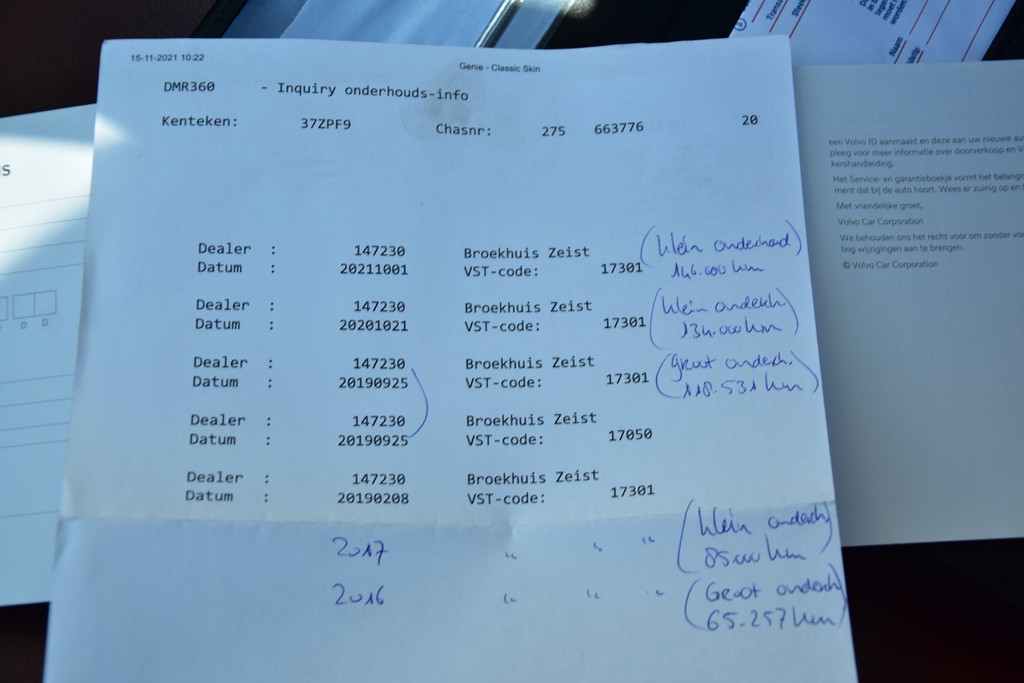 15-11-2021 10:22
Genie - Classic Skin
DMR360 - Inquiry onderhouds-info
Kenteken: 37ZPF9 Chasnr: 275 663776 20
Dealer : 147230 Broekhuis Zeist (klein onderhoud)
Datum : 20211001 VST-code: 17301 146.000 km
Dealer : 147230 Broekhuis Zeist (klein onderh)
Datum : 20201021 VST-code: 17301 134.000 km
Dealer : 147230 Broekhuis Zeist (Groot onderh.
Datum : 20190925 VST-code: 17301 118.531 km)
Dealer : 147230 Broekhuis Zeist
Datum : 20190925 VST-code: 17050
Dealer : 147230 Broekhuis Zeist
Datum : 20190208 VST-code: 17301
2017 " " " (klein onderh)
85000 km
2016 " " " (Groot onderh)
65.257 km
een Volvo ID aanmaakt en deze aan uw nieuwe
pleeg voor meer informatie over doorverkoop en
kershandleiding.
Het Service- en garantieboekje vormt het
ment dat bij de auto hoort. Wees er zuinig op en
Met vriendelijke groet,
Volvo Car Corporation
We behouden ons het recht voor om zonder
ling wijzigingen aan te brengen.
© Volvo Car Corporation
D D
Naam